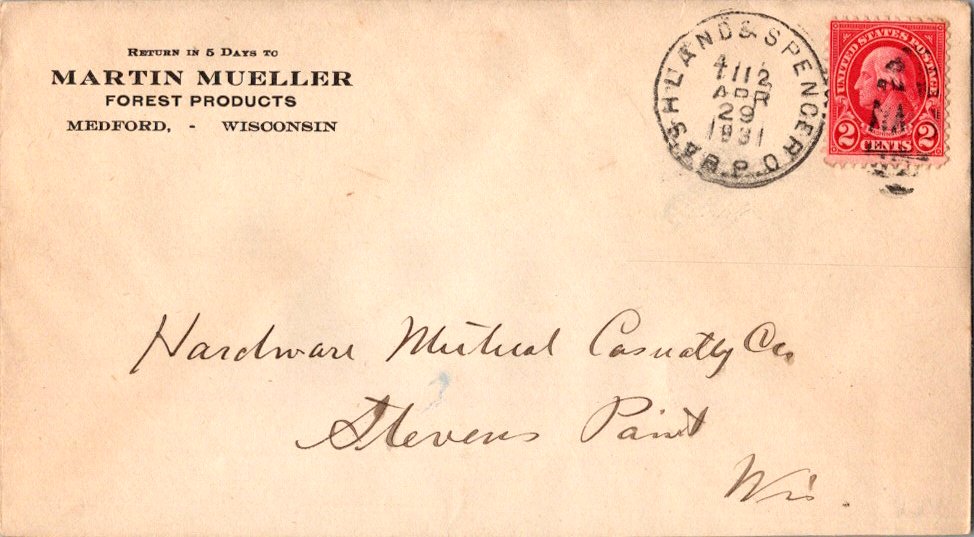 RETURN IN 5 DAYS TO
MARTIN MUELLER
FOREST PRODUCTS
MEDFORD, - WISCONSIN
ASHLAND & SPENCER
R.P.O.
T112
APR
29
1931
UNITED STATES POSTAGE
2 CENTS 2
Hardware Mutual Casualty Co
Stevens Point
Wis.